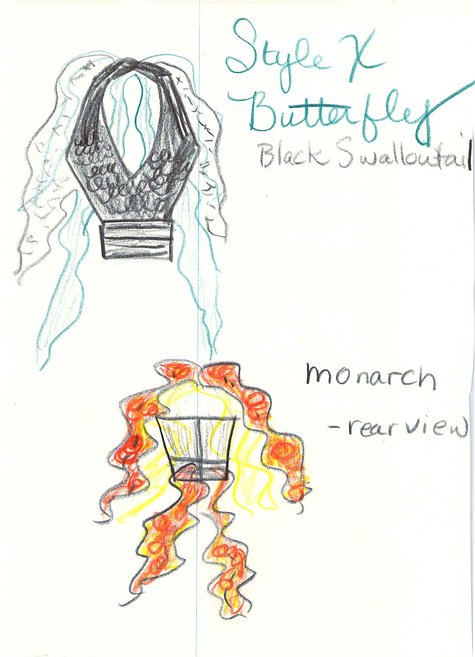 Style X
Butterfly
Black Swallowtail
monarch
-rear view